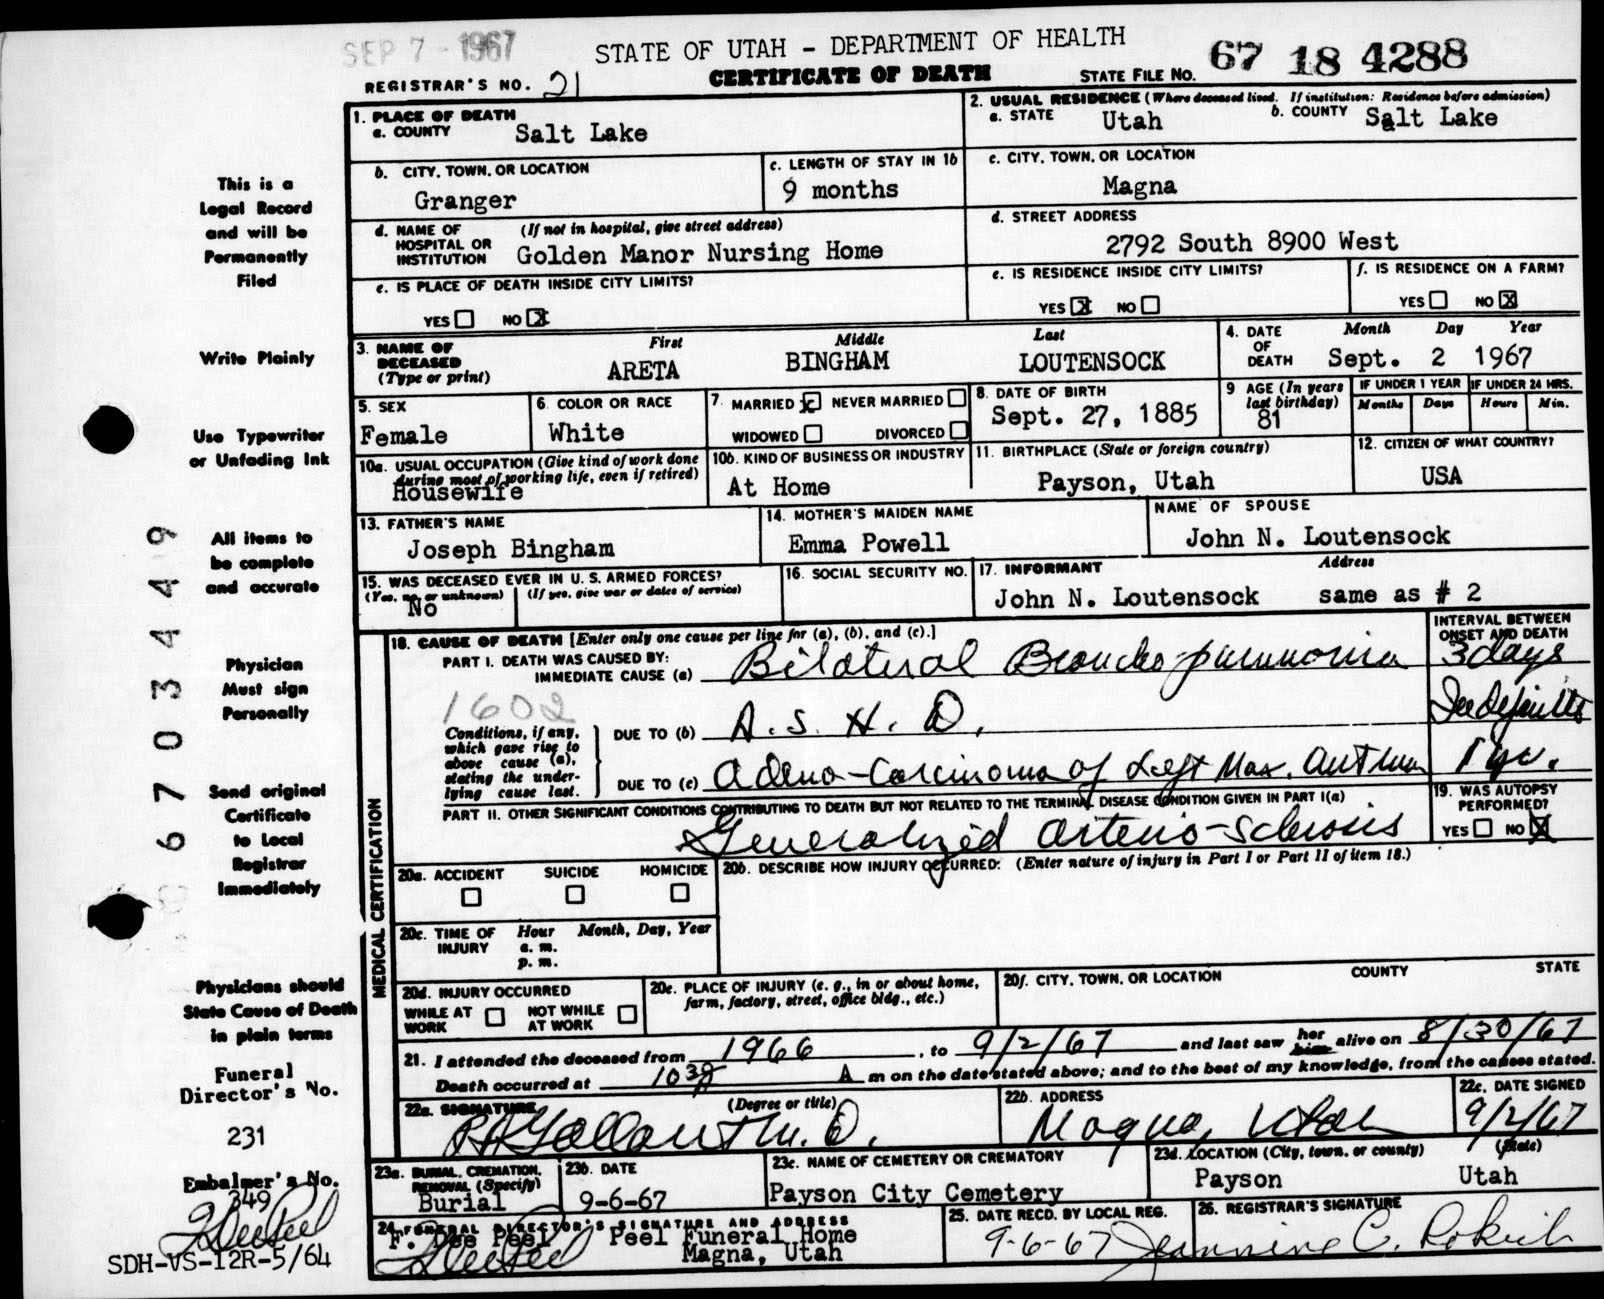 SEP 7 - 1967
STATE OF UTAH - DEPARTMENT OF HEALTH
67 18 4288
REGISTRAR'S NO. 21
CERTIFICATE OF DEATH
STATE FILE NO.
1. PLACE OF DEATH
a. COUNTY Salt Lake
2. USUAL RESIDENCE (Where deceased lived. If institution: Residence before admission)
a. STATE Utah b. COUNTY Salt Lake
b. CITY, TOWN, OR LOCATION
Granger
c. LENGTH OF STAY IN 1b
9 months
c. CITY, TOWN, OR LOCATION
Magna
d. NAME OF HOSPITAL OR INSTITUTION
(If not in hospital, give street address)
Golden Manor Nursing Home
d. STREET ADDRESS
2792 South 8900 West
e. IS PLACE OF DEATH INSIDE CITY LIMITS?
YES NO X
e. IS RESIDENCE INSIDE CITY LIMITS?
YES X NO
f. IS RESIDENCE ON A FARM?
YES NO X
3. NAME OF DECEASED
(Type or print)
First Middle Last
ARETA BINGHAM LOUTENSOCK
4. DATE OF DEATH
Month Day Year
Sept. 2 1967
5. SEX
Female
6. COLOR OR RACE
White
7. MARRIED X NEVER MARRIED
WIDOWED DIVORCED
8. DATE OF BIRTH
Sept. 27, 1885
9 AGE (In years last birthday)
81
IF UNDER 1 YEAR
Months Days
IF UNDER 24 HRS.
Hours Min.
10a. USUAL OCCUPATION (Give kind of work done during most of working life, even if retired)
Housewife
10b. KIND OF BUSINESS OR INDUSTRY
At Home
11. BIRTHPLACE (State or foreign country)
Payson, Utah
12. CITIZEN OF WHAT COUNTRY?
USA
13. FATHER'S NAME
Joseph Bingham
14. MOTHER'S MAIDEN NAME
Emma Powell
NAME OF SPOUSE
John N. Loutensock
15. WAS DECEASED EVER IN U. S. ARMED FORCES?
(Yes, no, or unknown) (If yes, give war or dates of service)
No
16. SOCIAL SECURITY NO.
17. INFORMANT Address
John N. Loutensock same as # 2
MEDICAL CERTIFICATION
18. CAUSE OF DEATH [Enter only one cause per line for (a), (b), and (c).]
INTERVAL BETWEEN ONSET AND DEATH
PART I. DEATH WAS CAUSED BY:
IMMEDIATE CAUSE (a) Bilateral Broncho-pneumonia 3 days
1602
Conditions, if any, which gave rise to above cause (a), stating the underlying cause last.
DUE TO (b) A. S. H. D.
DUE TO (c) Adeno-Carcinoma of Left Max. Antrum 1 yr.
PART II. OTHER SIGNIFICANT CONDITIONS CONTRIBUTING TO DEATH BUT NOT RELATED TO THE TERMINAL DISEASE CONDITION GIVEN IN PART I(a)
Generalized arterio-sclerosis
19. WAS AUTOPSY PERFORMED?
YES NO X
20a. ACCIDENT SUICIDE HOMICIDE
20b. DESCRIBE HOW INJURY OCCURRED: (Enter nature of injury in Part I or Part II of item 18.)
20c. TIME OF INJURY
Hour Month, Day, Year
a. m.
p. m.
20d. INJURY OCCURRED
WHILE AT WORK NOT WHILE AT WORK
20e. PLACE OF INJURY (e. g., in or about home, farm, factory, street, office bldg., etc.)
20f. CITY, TOWN, OR LOCATION COUNTY STATE
21. I attended the deceased from 1966, to 9/2/67 and last saw her him alive on 8/30/67
Death occurred at A m on the date stated above; and to the best of my knowledge, from the causes stated.
22a. SIGNATURE (Degree or title)
M. D.
22b. ADDRESS
Magna, Utah
22c. DATE SIGNED
9/2/67
23a. BURIAL, CREMATION, REMOVAL (Specify)
Burial
23b. DATE
9-6-67
23c. NAME OF CEMETERY OR CREMATORY
Payson City Cemetery
23d. LOCATION (City, town, or county) (State)
Payson Utah
24. FUNERAL DIRECTOR'S SIGNATURE AND ADDRESS
F. Dee Peel Peel Funeral Home
Magna, Utah
25. DATE RECD. BY LOCAL REG.
9-6-67
26. REGISTRAR'S SIGNATURE
This is a
Legal Record
and will be
Permanently
Filed
Write Plainly
Use Typewriter
or Unfading Ink
All items to
be complete
and accurate
Physician
Must sign
Personally
Send original
Certificate
to Local
Registrar
Immediately
Physicians should
State Cause of Death
in plain terms
Funeral
Director's No.
231
Embalmer's No.
349
SDH-VS-12R-5/64
67034449